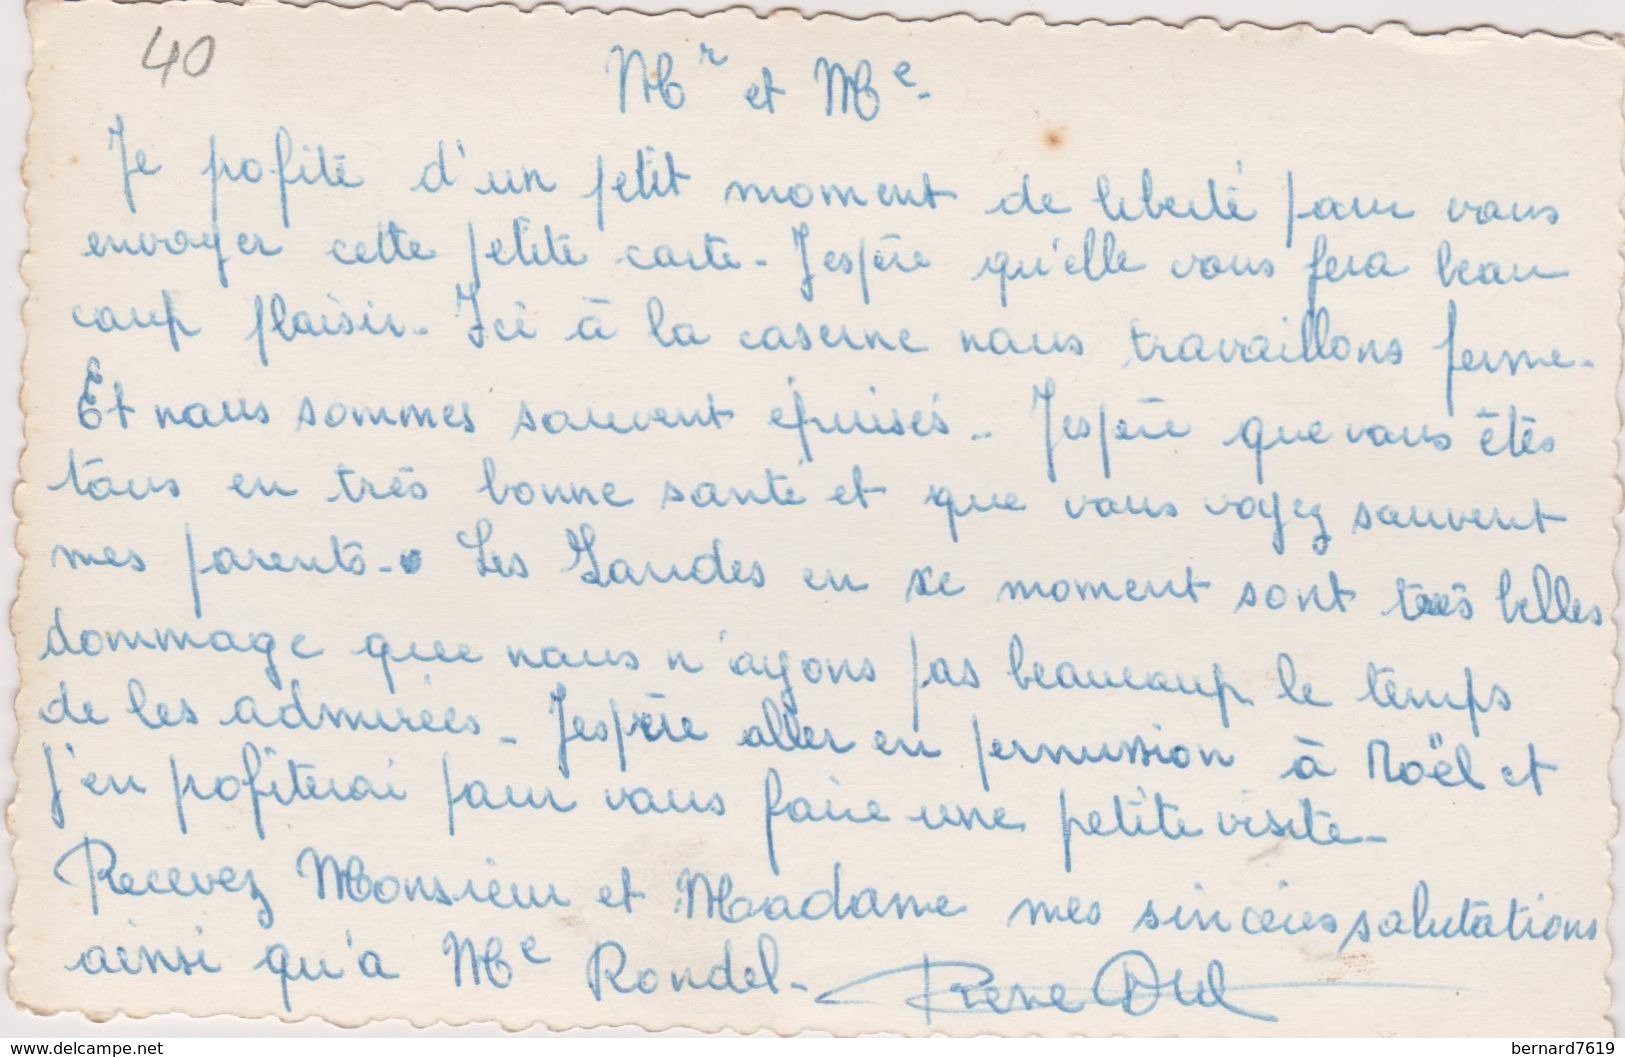 40
Mr et Me.
Je pofite d'un petit moment de liberté pour vous
envoyer cette petite carte. J'espère qu'elle vous fera beau
coup plaisir. Ici à la caserne nous travaillons ferme.
Et nous sommes souvent épuisés. J'espère que vous êtes
tous en très bonne santé et que vous voyez souvent
mes parents. Les Landes en ce moment sont très belles
dommage que nous n'ayons pas beaucoup le temps
de les admirées. J'espère aller en permission à Noël et
j'en pofiterai pour vous faire une petite visite.
Recevez Monsieur et Madame mes sincères salutations
ainsi qu'à Me Rondel. Rene
bernard7619
www.delcampe.net